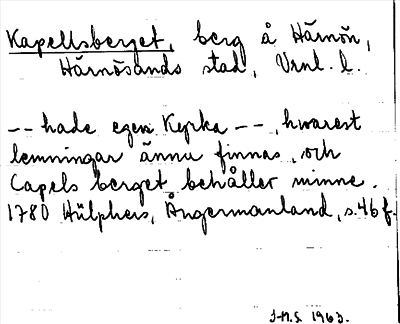 Kapellsberget, berg å Härnön,
Härnösands stad, Vrnl. l.
-- hade egen Kyrka --, hwarest
lemningar ännu finnas, och
Capels berget behåller minne.
1780 Hülphers, Ångermanland, s. 46 f.
J.M.S. 1963.